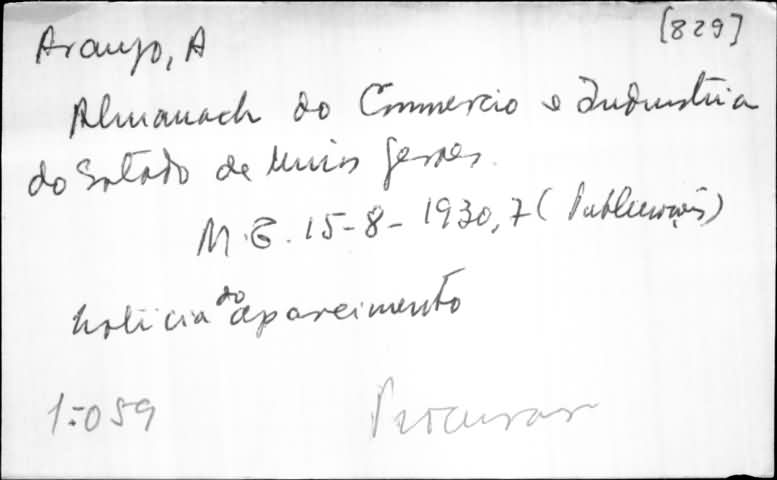 [829]
Araujo, A
Almanach do Commercio e Industria
do Estado de Minas Geraes.
M.G. 15-8-1930, 7 (Publicações)
Noticia do aparecimento
1.059
Procurar